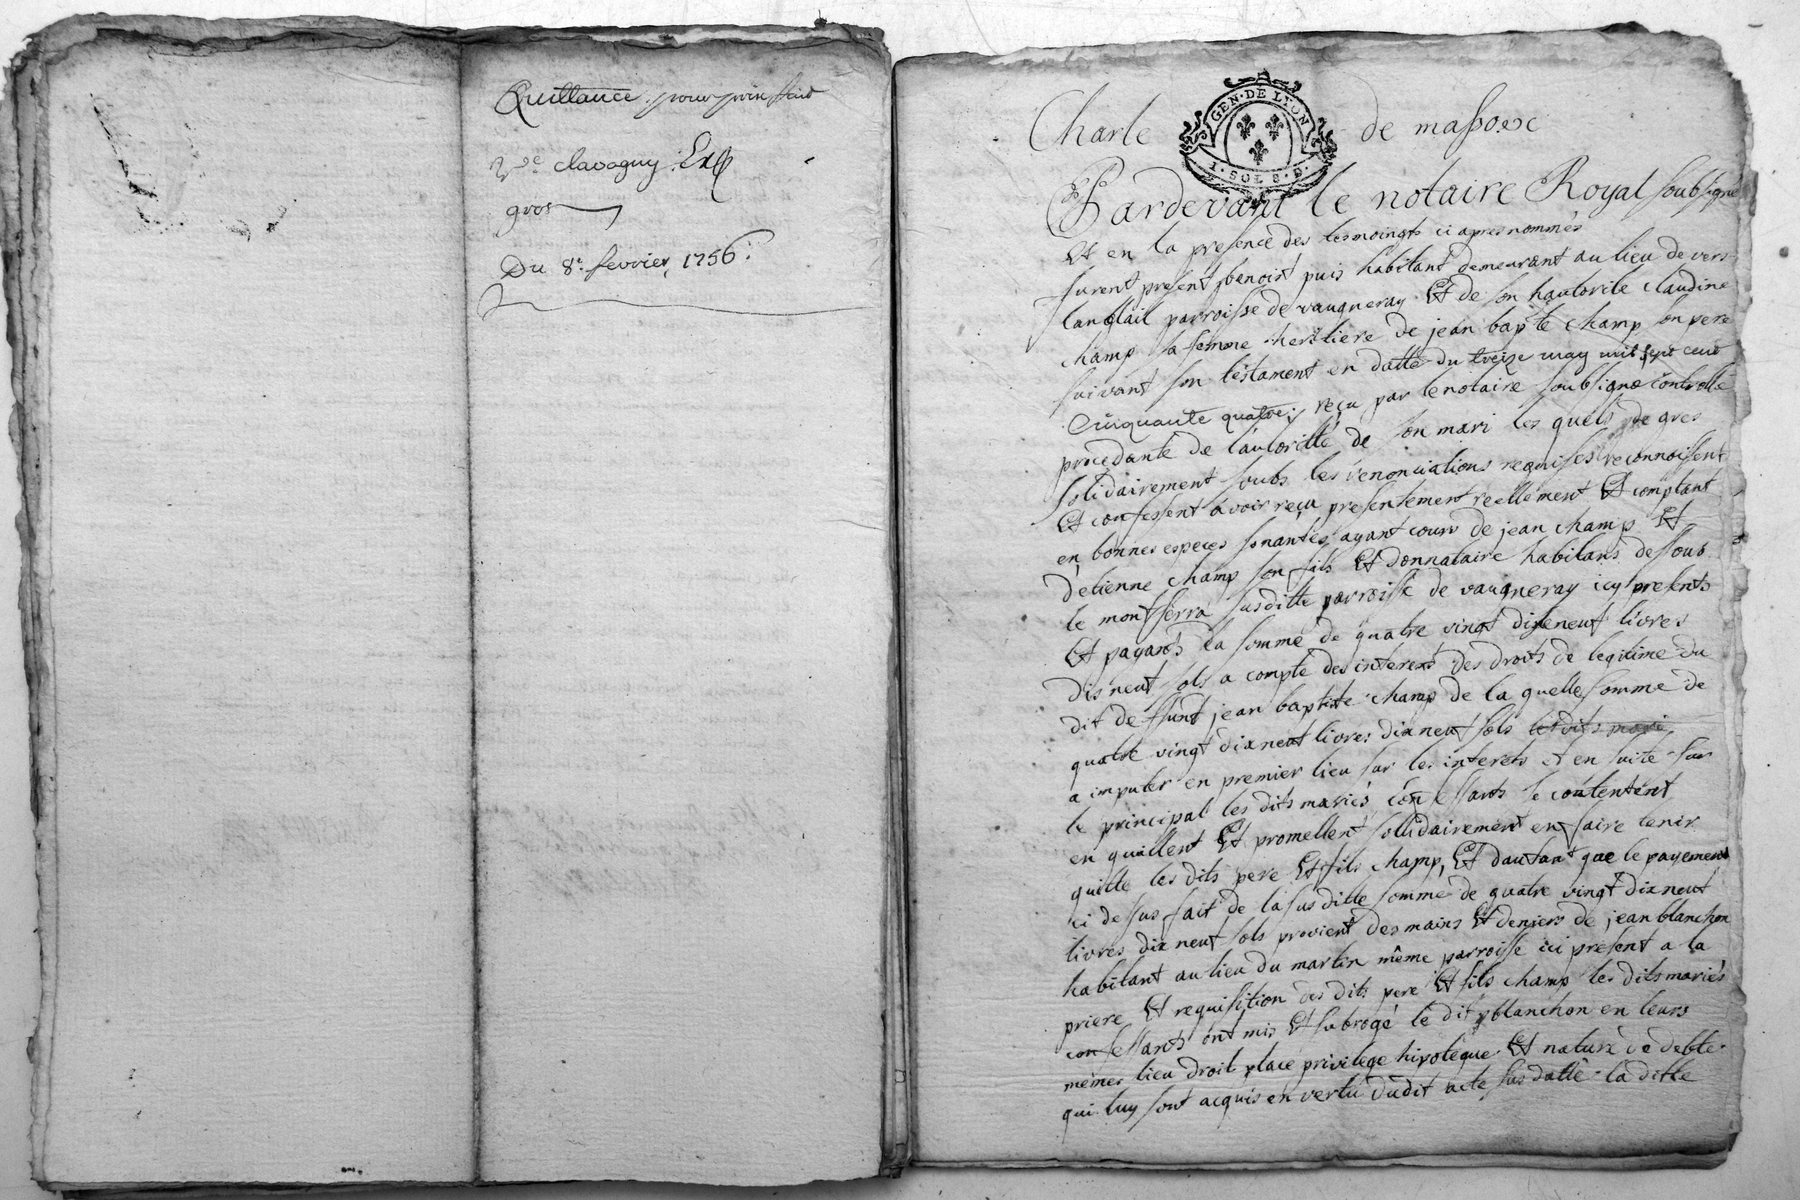 Quittance pour prix fait
clavagny Exp
gros
Du 8e. fevrier 1756:
Charle de massoxe
GEN·DE LYON
1·SOL 8·D·
Pardevant le notaire Royal soubsigné
Et en la presence des tesmoingts ci apres nommés
furent present benoist puis habitant demeurant au lieu de vers
langlail parroisse de vaugneray Et de son hautorité claudine
champ sa femme heritiere de jean bapte champ son pere
suivant son testament en datte du treize may mil sept cent
Cinquante quatre, reçu par le notaire soubsigné controllé
procedante de l'autorité de son mari les quels de gres
solidairement soubs les renonciations requises reconnoissent
Et confessent avoir reçu presentement reellement Et comptant
en bonnes especes sonantes ayant cours de jean champ Et
d'etienne champ son fils Et donnataire habitans dessous
le montferra susditte parroisse de vaugneray icy presents
Et payants la somme de quatre vingt dixeneuf livres
dis neuf sols a compte des interests des droits de legitime du
dit deffunt jean baptiste champ de la quelle somme de
quatre vingt dixneuf livres dixneuf sols lesdits mari
a imputer en premier lieu sur les interets et en suite sur
le principal les dits mariés confessants se contentent
en quittent Et promettent solidairement en faire tenir
quitte les dits pere Et fils champ, Et dautant que le payement
ci dessus fait de la susditte somme de quatre vingt dixneuf
livres dixneuf sols provient des mains Et deniers de jean blanchon
habitant au lieu du martin même parroisse ici present a la
priere Et requisition des dits pere Et fils champ les dits mariés
confessants ont mis Et subrogé le dit blanchon en leurs
mêmes lieu droit place privilege hipoteque Et nature de debte
qui luy sont acquis en vertu dudit acte sus datté la ditte